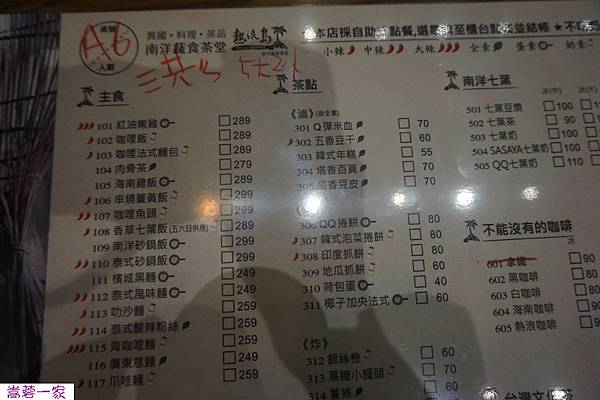 桌號
A6
人數
異國・料理・茶品
南洋蔬食茶堂
熱浪島
★本店採自助點餐,選
至櫃台點
並結帳
小辣
中辣
大辣
全素
蛋素
奶素
主食
101 紅油嫩雞 289
102 咖哩飯 289
103 咖哩法式麵包 289
104 肉骨茶 279
105 海南雞飯 289
106 串燒薑黃飯 299
107 咖哩魚頭 289
108 香草七葉飯(五六日供應) 299
109 南洋砂鍋飯 299
110 泰式砂鍋飯 299
111 檳城黑麵 249
112 泰式風味麵 249
113 叻沙麵 259
114 泰式酸辣粉絲 259
115 青咖哩麵 259
116 廣東意麵 249
117 爪哇麵 259
茶點
《滷》(皆全素)
301 Q彈米血 70
302 五香豆干 60
303 韓式年糕 55
304 塔香百頁 70
305 塔香豆皮 70
306 QQ捲餅 80
307 韓式泡菜捲餅 80
308 印度抓餅 60
309 地瓜抓餅 60
310 荷包蛋 40
311 椰子加央法式 60
《炸》
312 銀絲卷 60
313 黑糖小饅頭 60
314 薯條 60
南洋七葉
冰(中)
冰(大)
501 七葉豆漿 100
502 七葉茶 90
503 七葉奶 100
504 SASAYA七葉奶 110
505 QQ七葉奶 110
不能沒有的咖啡
冰
601 拿鐵 90
602 黑咖啡 80
603 白咖啡 80
604 海南咖啡 80
605 熱浪咖啡 90
嵩蓉一家